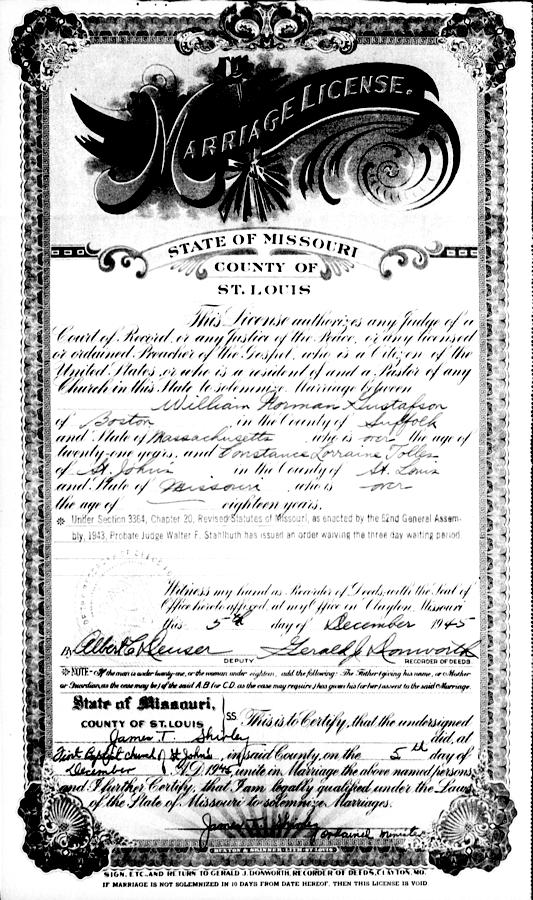 MARRIAGE LICENSE.
STATE OF MISSOURI
COUNTY OF
ST. LOUIS
This License authorizes any Judge of a
Court of Record, or any Justice of the Peace, or any licensed
or ordained Preacher of the Gospel, who is a Citizen of the
United States, or who is a resident of and a Pastor of any
Church in this State to solemnize Marriage between
William Norman Gustafson
of Boston in the County of Suffolk
and State of Massachusetts who is over the age of
twenty-one years, and Constance Lorraine Tolles
of St. Johns in the County of St. Louis
and State of Missouri who is over
the age of eighteen years.
* Under Section 3364, Chapter 20, Revised Statutes of Missouri, as enacted by the 62nd General Assem-
bly, 1943, Probate Judge Walter F. Stahlhuth has issued an order waiving the three day waiting period.
Witness my hand as Recorder of Deeds, with the Seal of
Office hereto affixed, at my Office in Clayton, Missouri
this 5th day of December 1945
BY Albert C Deuser Gerald J Donworth
DEPUTY RECORDER OF DEEDS
* NOTE - If the man is under twenty-one, or the woman under eighteen, add the following: The Father (giving his name, or Mother
or Guardian, as the case may be) of the said A.B (or C.D. as the case may require) has given his (or her) assent to the said Marriage.
State of Missouri,
COUNTY OF ST. LOUIS SS This is to Certify, that the undersigned
James T. Shirley did, at
First Baptist church of St Johns in said County, on the 5th day of
December A.D. 1945, unite in Marriage the above named persons,
and I further Certify, that I am legally qualified under the Laws
of the State of Missouri to solemnize Marriages.
James T. Shirley ordained minister
BUXTON & SKINNER LITH. ST. LOUIS
SIGN, ETC., AND RETURN TO GERALD J. DONWORTH, RECORDER OF DEEDS, CLAYTON, MO.
IF MARRIAGE IS NOT SOLEMNIZED IN 10 DAYS FROM DATE HEREOF, THEN THIS LICENSE IS VOID